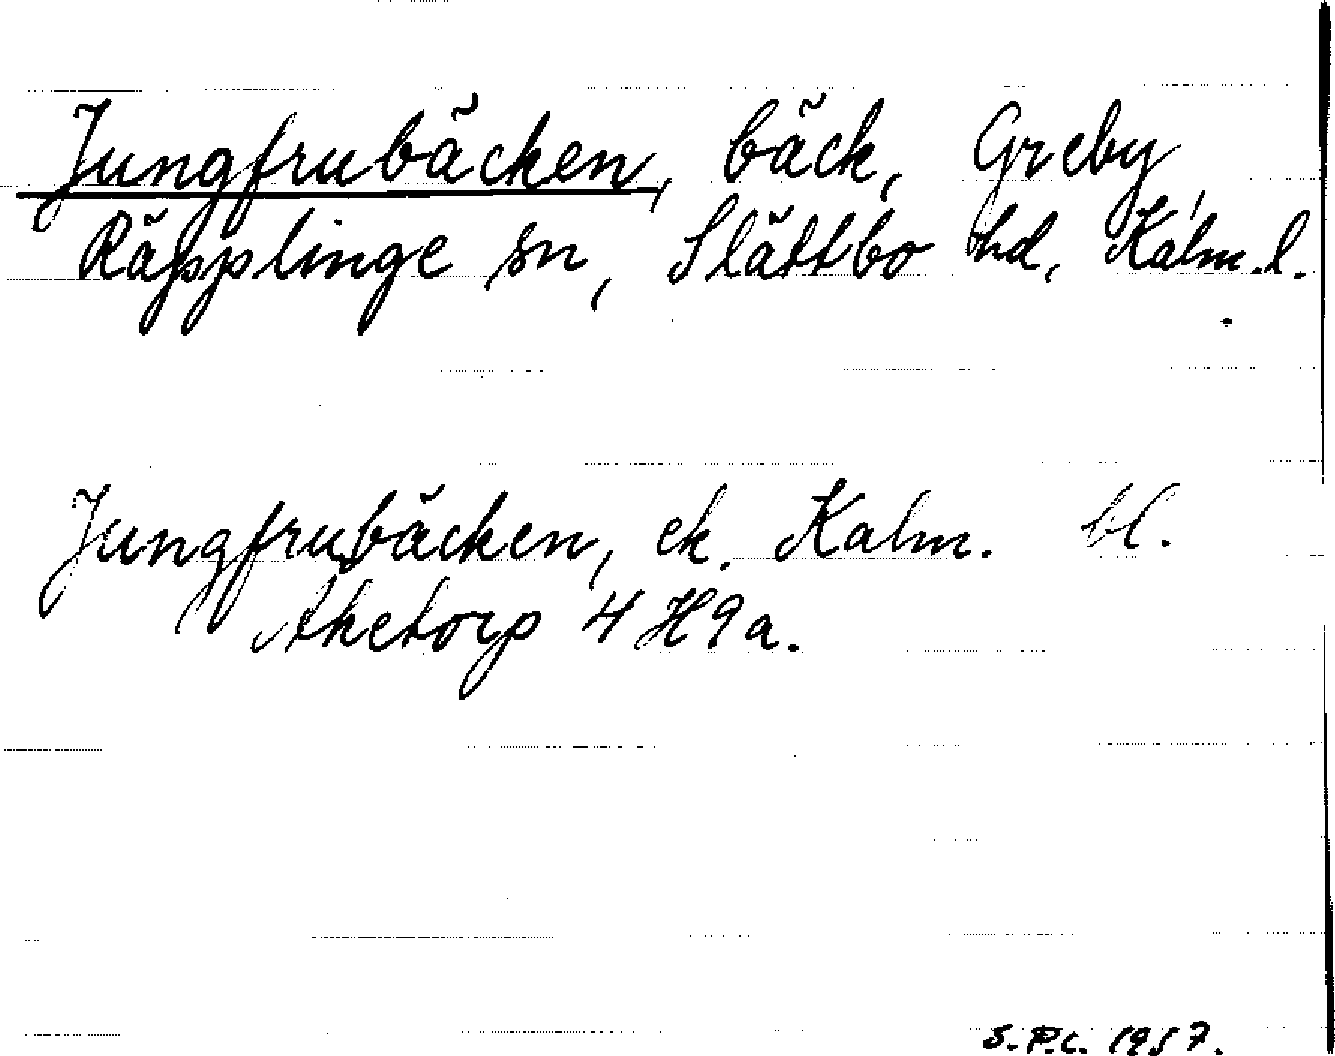 Jungfrubäcken, bäck, Greby
Räpplinge sn, Slättbo hd, Kalm. l.
Jungfrubäcken, ek. Kalm. bl.
Aketorp 4 H9a.
S.P.C. 1957.